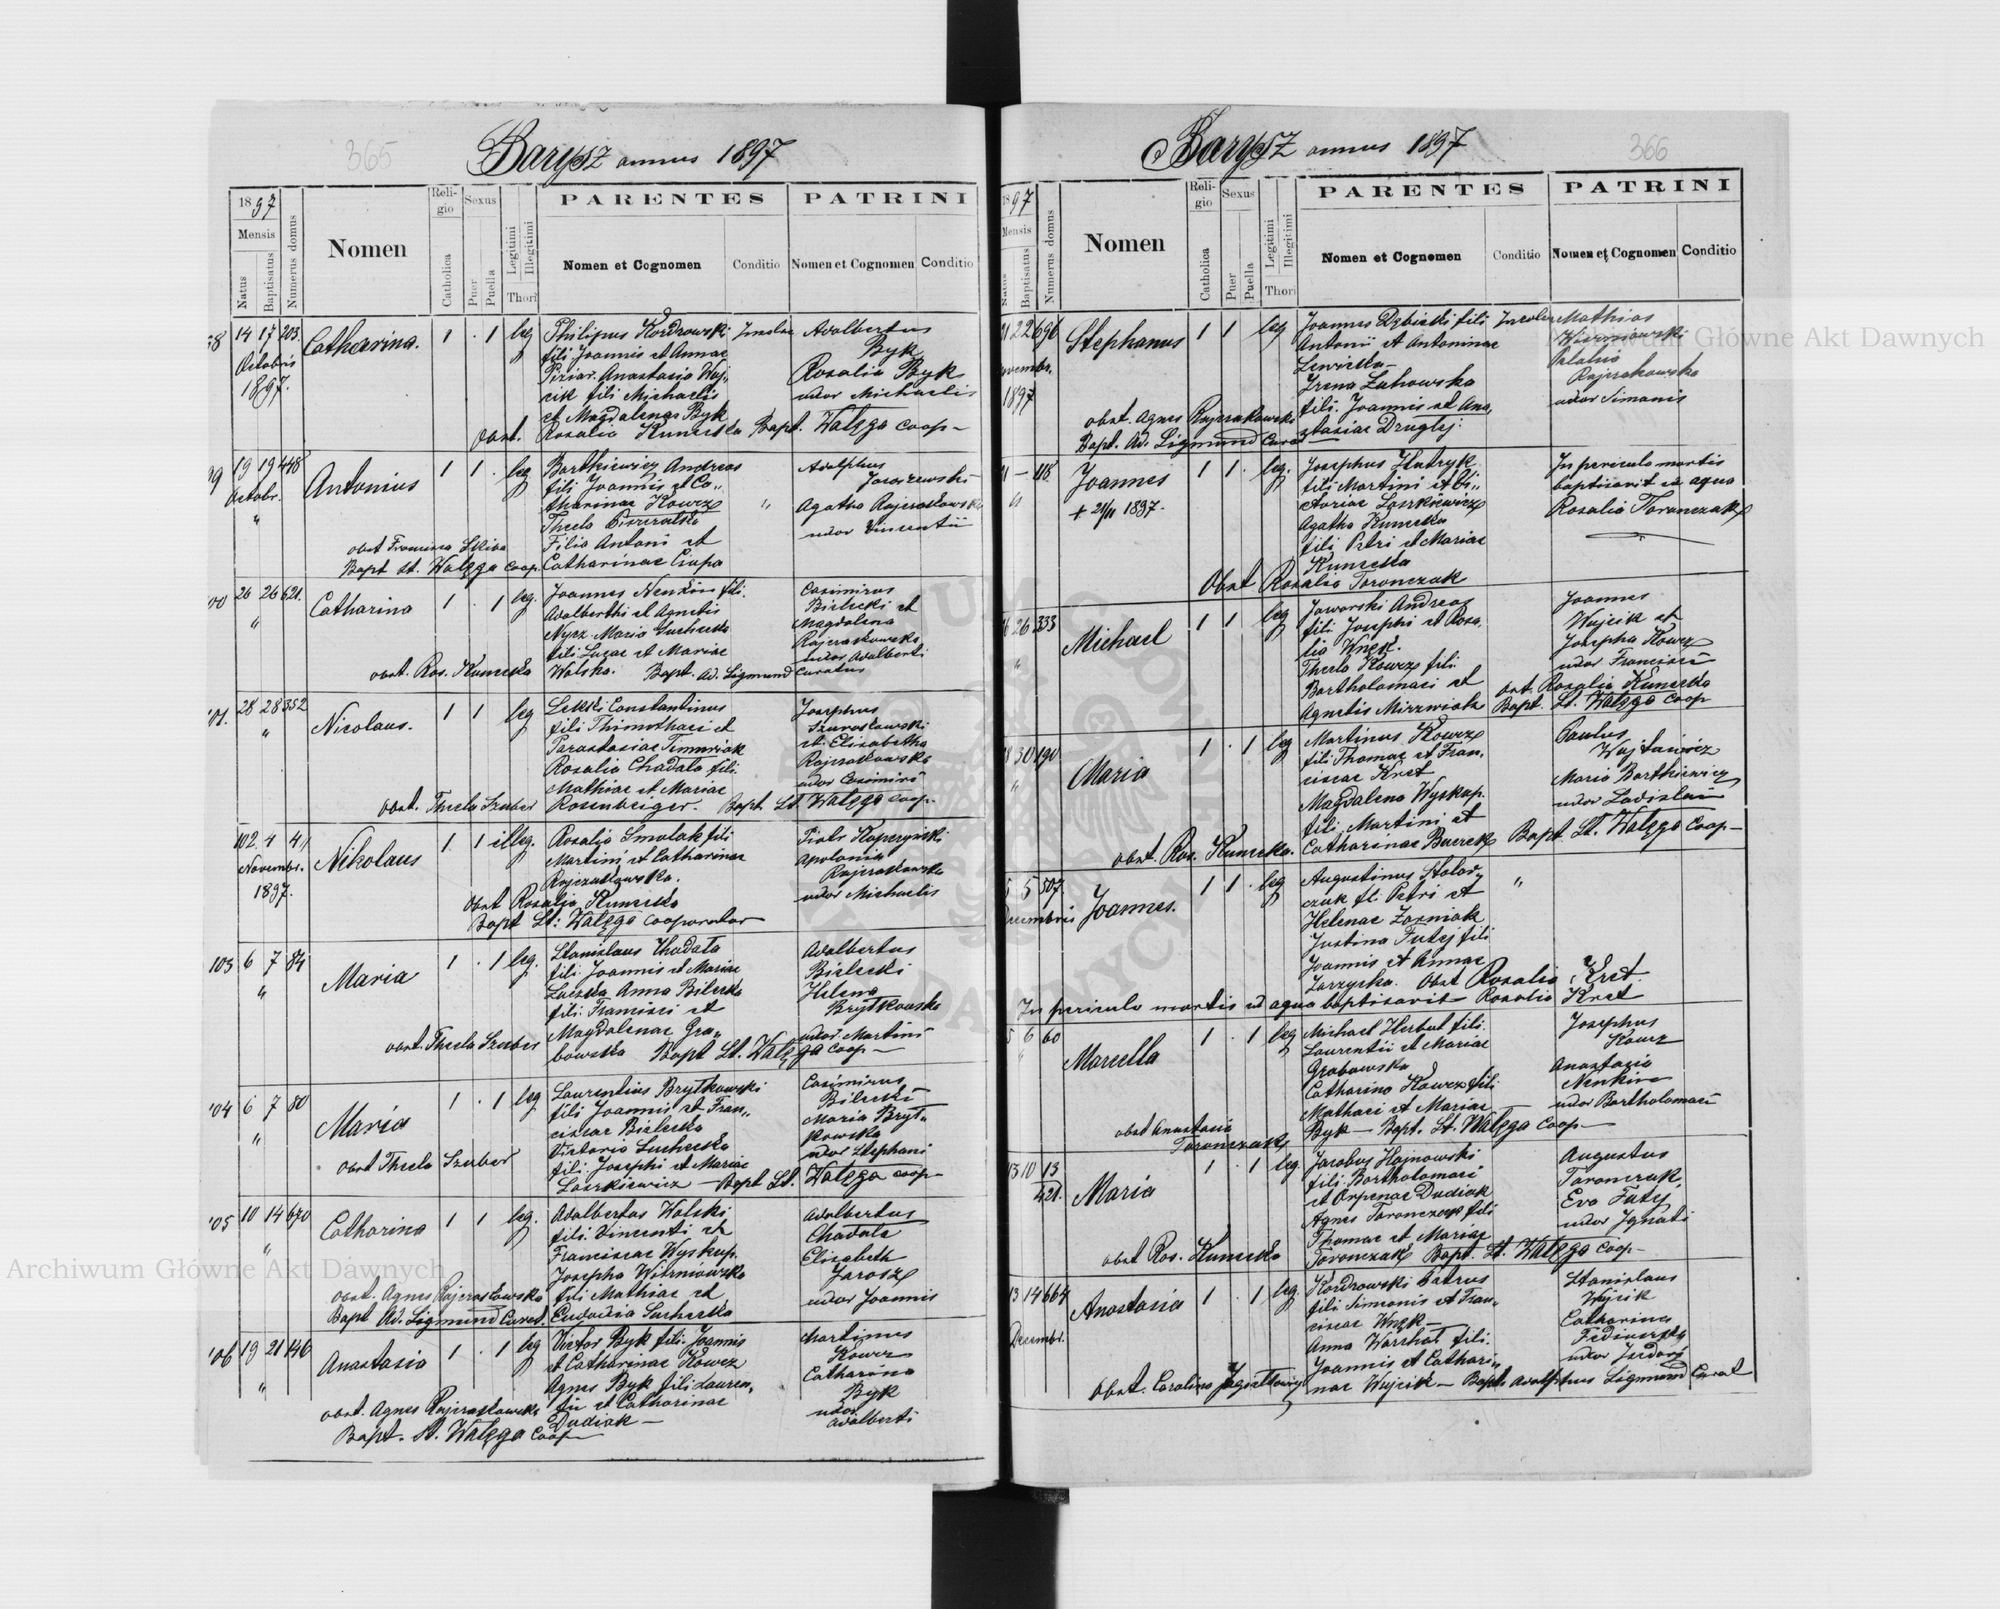 365
Barysz annus 1897
1897
Mensis
Natus
Baptisatus
Numerus domus
Nomen
Reli-
gio
Catholica
Sexus
Puer
Puella
Legitimi
Illegitimi
Thori
PARENTES
Nomen et Cognomen
Conditio
PATRINI
Nomen et Cognomen
Conditio
98 14 17 203 Catharina. 1 . 1 leg
Octobris
1897.
Philipus Kordrowski
fili Joannis et Annae
Anastasia Woj-
cik fili Michaelis
et Magdalenae Byk
Adalbertus
Byk
Rosalia Byk
uxor Michaelis
obst. Rosalia Kunecka Bapt. Wałęga coop-
99 19 19 448 Antonius 1 1 . leg
Octobr.
"
Bartkiewicz Andreas
fili Joannis et Ca-
tharinae Kowcz "
Thecla
Filia Antoni et
Catharinae Ciupa
Adolphus
Agatha Rajczakowska
uxor Vincentii
obst Francisca Skiba
Bapt St. Wałęga coop.
100 26 26 621 Catharina 1 . 1 leg.
"
Joannes Nenkin fili.
Adalberthi et Agnetis
Nycz Maria Suchecka
fili Lucae et Mariae
Wolska.
Casimirus
Bielecki et
Magdalena
Rajczakowska
uxor Adalberti
obst. Ros. Kunecka Bapt. Ad. Zigmund Curatus
101. 28 28 352 Nicolaus. 1 1 leg
"
Constantinus
fili Thimothaei et
Parastasiae Timurziak
Rosalia Chadala fili.
Mathiae et Mariae
Rosenberger.
Josephus
Szurosławski
et Elisabetha
Rajczakowska
uxor Casimiri
obst. Thecla Szuber Bapt. St. Wałęga coop.
102. 4 4 Nikolaus 1 1 illeg.
Novembr.
1897.
Rosalia Smolak fili
Martini et Catharinae
Rajczakowska.
Piotr Kopczyński
Apolonia
Rajczakowska
uxor Michaelis
Obst Rosalia Kunecka
Bapt St: Wałęga cooperator
103 6 7 84 Maria 1 . 1 leg.
"
Stanislaus Chadala
fili. Joannis et Mariae
Anna Bilecka
fili. Francisci et
Magdalenae Gra-
bowska
Adalbertus
Bielecki
Helena
Brytkowska
uxor Martini
obst. Thecla Szuber Bapt St. Wałęga coop-
104 6 7 80 Maria 1 . 1 leg
"
Laurentius Brytkowski
fili Joannis et Fran-
ciscae Bielecka
Victoria Suchecka
fili. Josephi et Mariae
Loszkiewicz
Casimirus
Bielecki
Maria Bryt-
kowska
uxor Stephani
obst Thecla Szuber Bapt St. Wałęga coop-
105 10 14 670 Catharina 1 1 leg.
"
Adalbertus Wolski
fili. Vincenti et
Franciscae Wyskup.
Josepha Wiśniowska
fili Mathiae et
Eudoxia Suchecka
Adalbertus
Chadala
Elisabeth
Jarosz
uxor Joannis
obst. Agnes Rajczakowska
Bapt Ad. Zigmund Curat.
106 19 21 146 Anastasia 1 . 1 leg
"
Victor Byk fili. Joannis
et Catharinae Kowcz
Agnes Byk fili Lauren-
tii et Catharinae
Dudiak-
Martinus
Kowcz
Catharina
Byk
uxor
Adalberti
obst. Agnes Rajczakowska
Bapt. St. Wałęga Coop-
366
Barysz annus 1897
1897
Mensis
Natus
Baptisatus
Numerus domus
Nomen
Reli-
gio
Catholica
Sexus
Puer
Puella
Legitimi
Illegitimi
Thori
PARENTES
Nomen et Cognomen
Conditio
PATRINI
Nomen et Cognomen
Conditio
21 22 696 Stephanus 1 1 leg
Novembr.
1897
Joannes Dębicki fili
Antonii et Antoninae
Lewicka-
Irena Żukowska
fili. Joannis et Ana-
stasiae Druglej.
Mathias
Wiśniowski
Rajczakowska
uxor Simonis
obst. Agnes Rajczakowska
Bapt. Ad. Zigmund Curat
21 - 118 Joannes 1 1 . leg.
"
+ 21/11 1897.
Josephus Hutryk
fili Martini et Vi-
ctoriae Loszkiewicz
Agatha Kunecka
fili Petri et Mariae
Kunecka
In periculo mortis
baptisavit ex aqua
Rosalia Toronczak
Obst Rosalia Toronczak
26 26 333 Michael 1 1 leg
"
Jaworski Andreas
fili Josephi et Rosa-
lia Wnęk.
Thecla Kowcz fili
Bartholomaei et
Agnetis
Joannes
Wujcik et
Josepha Kowcz
uxor Francisci
obt. Rosalia Kunecka
Bapt. St. Wałęga coop
28 30 190 Maria 1 . 1 leg
"
Martinus Kowcz
fili Thomae et Fran-
ciscae Kret
Magdalena Wyskup.
fili Martini et
Catharinae
Paulus
Wojtowicz
Maria Bartkiewicz
uxor Ladislai
obst. Ros. Kunecka. Bapt. St. Wałęga coop-
5 5 507 Joannes. 1 1 . leg
Decembris
Augustinus Stolar-
czuk fi. Petri et
Helenae Zozniak
Justina Futej fili
Joannis et Annae
Zarzycka. Obst Rosalia Kret.
"
In periculo mortis ex aqua baptisavit Rosalia Kret
5 6 60 Marcella 1 . 1 leg
"
Michael Herbut fili.
Laurentii et Mariae
Grabowska
Catharina Kowcz fili.
Mathaei et Mariae
Byk- Bapt. St. Wałęga Coop-
Josephus
Kowcz
Anastasia
Nenkin
uxor Bartholomaei
obst Anastasia
Toronczak
13 10 13 Maria 1 . 1 leg
421.
Jacobus Hajnowski
fili. Bartholomaei
et Dudiak
Agnes Toronczak fili
Thomae et Mariae
Toronczak Bapt. St. Wałęga Coop-
Augustus
Toronczak,
Eva Futej
uxor Ignati
obst Ros. Kunecka
13 14 664 Anastasia 1 . 1 leg.
Decembr.
Kordrowski Petrus
fili Simonis et Fran-
ciscae Wnęk-
Anna Warchoł fili.
Joannis et Cathari-
nae Wujcik- Bapt. Adolphus Zigmund Curat
Stanislaus
Wujcik
Catharina
uxor Isidori
obst. Carolina
Archiwum Główne Akt Dawnych
Archiwum Główne Akt Dawnych